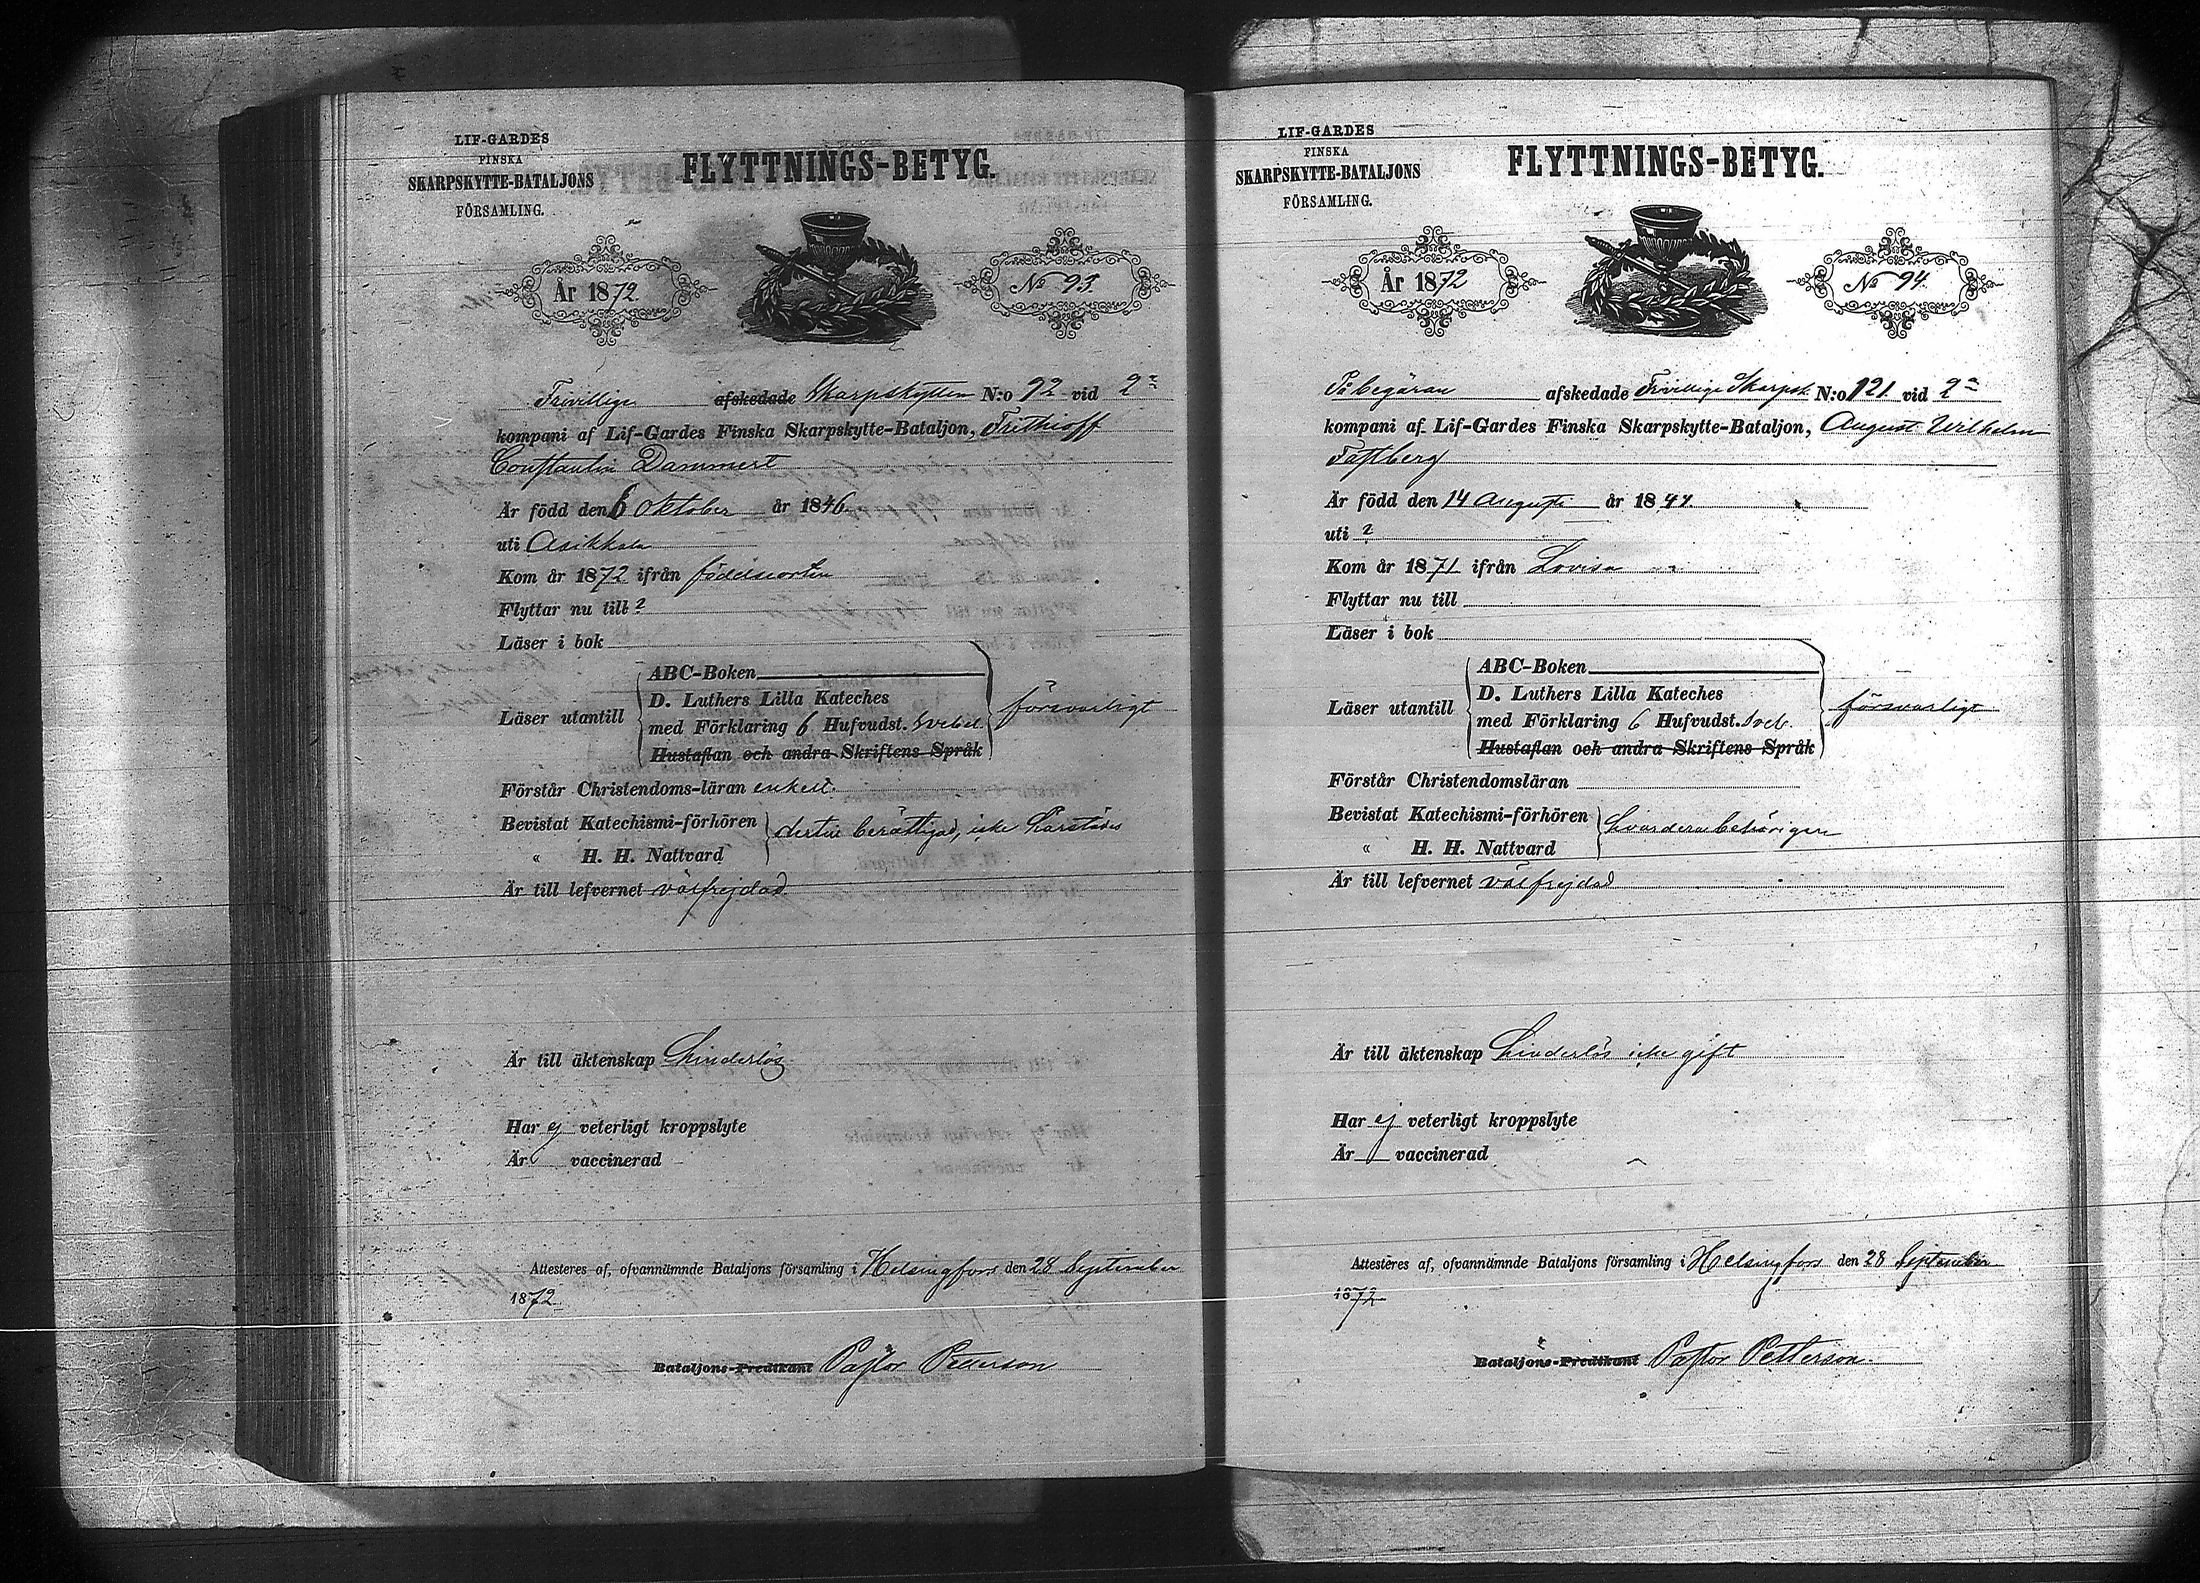 LIF-GARDES
FINSKA
SKARPSKYTTE-BATALJONS
FÖRSAMLING.
FLYTTNINGS-BETYG.
År 1872.
No 93.
Frivillige afskedade Skarpskytten N:o 92 vid 2
kompani af Lif-Gardes Finska Skarpskytte-Bataljon, Frithioff
Constantin Dammert
Är född den 6 Oktober år 1846.
uti Asikkala
Kom år 1872 ifrån födelseorten
Flyttar nu till ?
Läser i bok
Läser utantill
ABC-Boken
D. Luthers Lilla Kateches
med Förklaring 6 Hufvudst. Svebel.
Hustaflan och andra Skriftens Språk
försvarligt
Förstår Christendoms-läran enkelt.
Bevistat Katechismi-förhören
" H. H. Nattvard
dertill berättigad, icke
Är till lefvernet välfrejdad
Är till äktenskap hinderlös
Har ej veterligt kroppslyte
Är vaccinerad
Attesteres af, ofvannämnde Bataljons församling i Helsingfors den 28 September
1872.
Bataljons-Predikant Pastor Petterson
LIF-GARDES
FINSKA
SKARPSKYTTE-BATALJONS
FÖRSAMLING.
FLYTTNINGS-BETYG.
År 1872
No 94.
På begäran afskedade Frivillige Skarpsk. N:o 121. vid 2
kompani af Lif-Gardes Finska Skarpskytte-Bataljon, August Wilhelm
Fastberg
Är född den 14 Augusti år 1847.
uti ?
Kom år 1871 ifrån Lovisa
Flyttar nu till
Läser i bok
Läser utantill
ABC-Boken
D. Luthers Lilla Kateches
med Förklaring 6 Hufvudst. Sveb.
Hustaflan och andra Skriftens Språk
försvarligt
Förstår Christendomsläran
Bevistat Katechismi-förhören
" H. H. Nattvard
hvardera behörigen
Är till lefvernet välfrejdad
Är till äktenskap hinderlös icke gift
Har ej veterligt kroppslyte
Är vaccinerad
Attesteres af, ofvannämnde Bataljons församling i Helsingfors den 28 September
1872
Bataljons-Predikant Pastor Petterson.